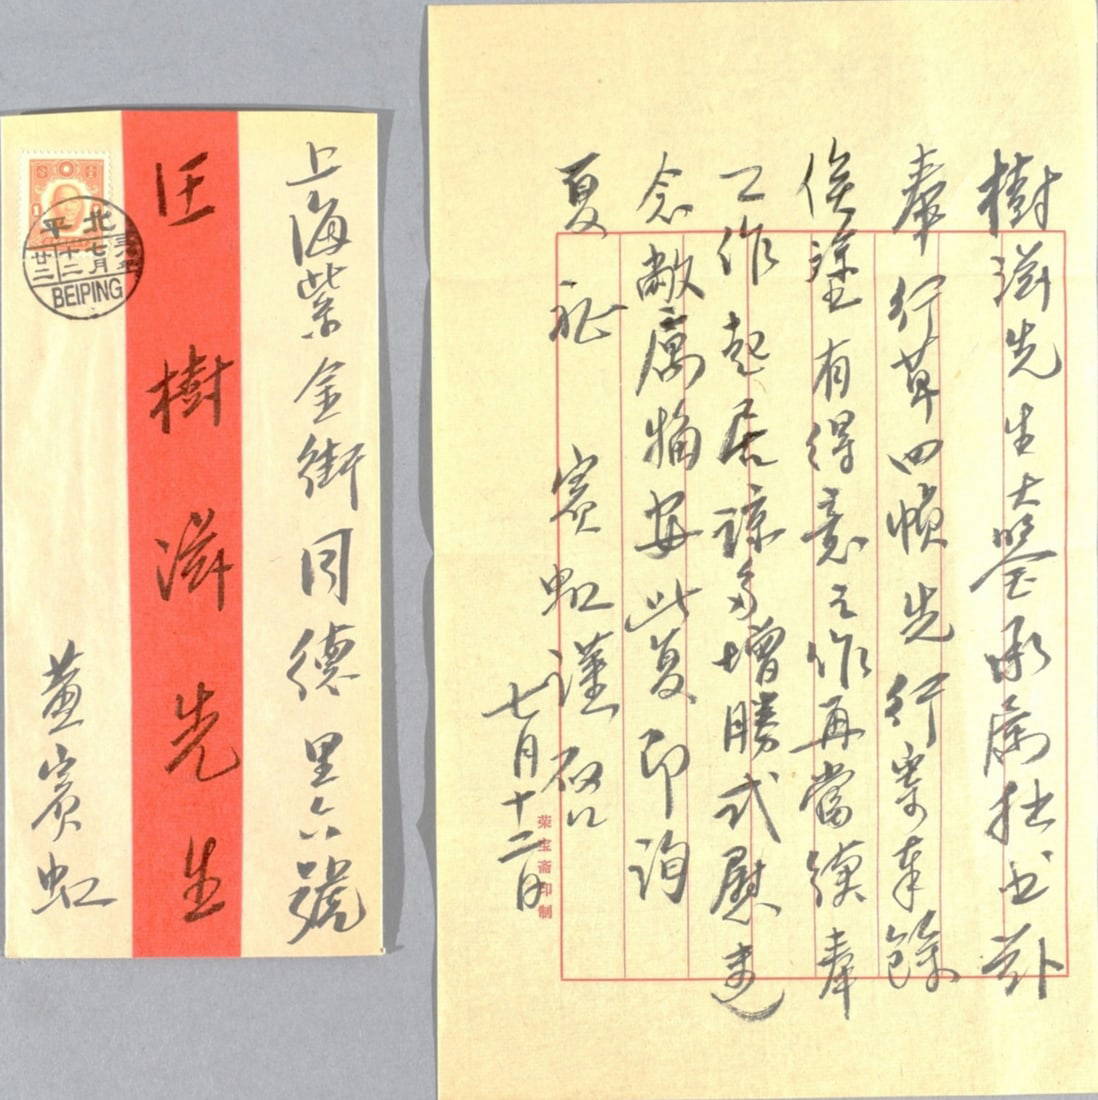 上海紫金街同德里六號
匡樹滋先生
黃賓虹
北平
七月
十二
廿二
BEIPING
樹滋先生大鑒承属拙书茲
奉行草四幀先行寄奉餘
俟有得意之作再當續奉
工作起居諒多增勝式慰遠
念敝寓安此复即詢
夏祉 賓虹謹啟
七月十二日
荣宝斋印制